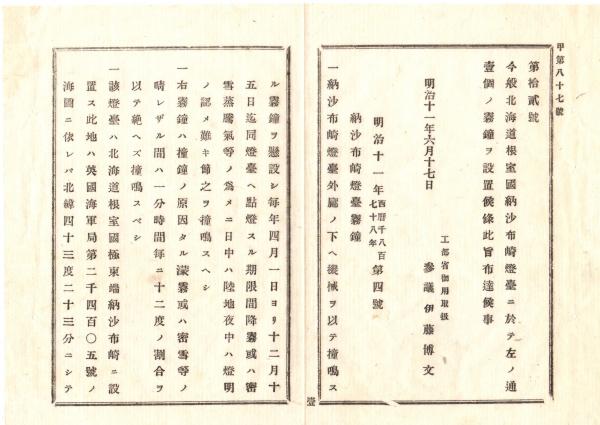 甲第八十七號
第拾貳號
今般北海道根室國納沙布崎燈臺ニ於テ左ノ通
壹個ノ霧鐘ヲ設置候條此旨布達候事
工部省御用取扱
明治十一年六月十七日　參議伊藤博文
明治十一年西曆千八百七十八年第四號
納沙布崎燈臺霧鐘
一納沙布崎燈臺外廊ノ下ヘ機械ヲ以テ撞鳴ス
壹
ル霧鐘ヲ懸設シ每年四月一日ヨリ十二月十
五日迄同燈臺ヘ點燈スル期限間降霧或ハ密
雪蒸騰氣等ノ爲メニ日中ハ陸地夜中ハ燈明
ノ認メ難キ節之ヲ撞鳴スヘシ
一右霧鐘ハ撞鐘ノ原因タル濛霧或ハ密雪等ノ
晴レザル間ハ一分時間每ニ十二度ノ割合ヲ
以テ絶ヘズ撞鳴スベシ
一該燈臺ハ北海道根室國極東端納沙布崎ニ設
置ス此地ハ英國海軍局第二千四百〇五號ノ
海圖ニ依レバ北緯四十三度二十三分ニシテ